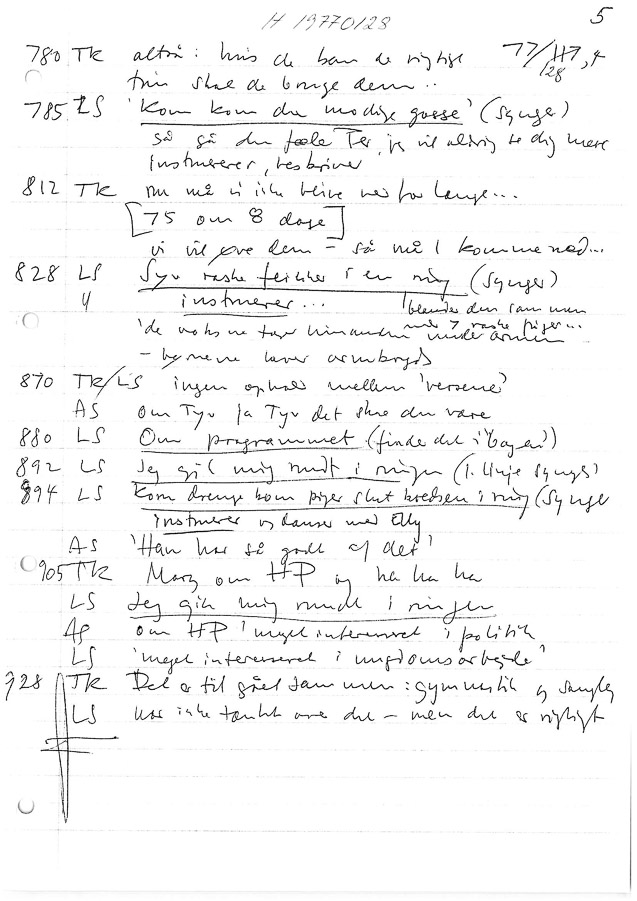 H 19770128
5
780 TK altså: hvis de kan de rigtige 77/117,4
1/28
trin skal de bruge dem..
785 LS 'Kom kom du modige gosse' (synger)
så gå du fæle Per, jeg vil aldrig se dig mere
instruerer, beskriver
812 TK nu må vi ikke blive ved for længe...
[75 om 8 dage]
vi vil øve dem - så må I komme ned...
828 LS Syv raske fikker i en ring (synger)
" instruerer... blander den sammen
med 7 raske piger...
'de voksne tager hinanden under armen
- børnene laver armkryds
870 TK/LS ingen ophold mellem 'versene'
AS om Tyv ja Tyv det skal du være
880 LS Om programmet (finde det i bogen?)
892 LS Jeg gik mig rundt i ringen (1. linje synges)
894 LS Kom drenge kom piger slut kredsen i ring (synger
instruerer og danser med Elly
AS 'Han har så godt af det'
905 TK Marg om HP og ha ha ha
LS Jeg gik mig rundt i ringen
AS om HP 'meget interesseret i politik
LS 'meget interesseret i ungdomsarbejde'
928 TK Det er til gået sammen: gymnastik og sangleg
LS har ikke tænkt over det - men det er rigtigt